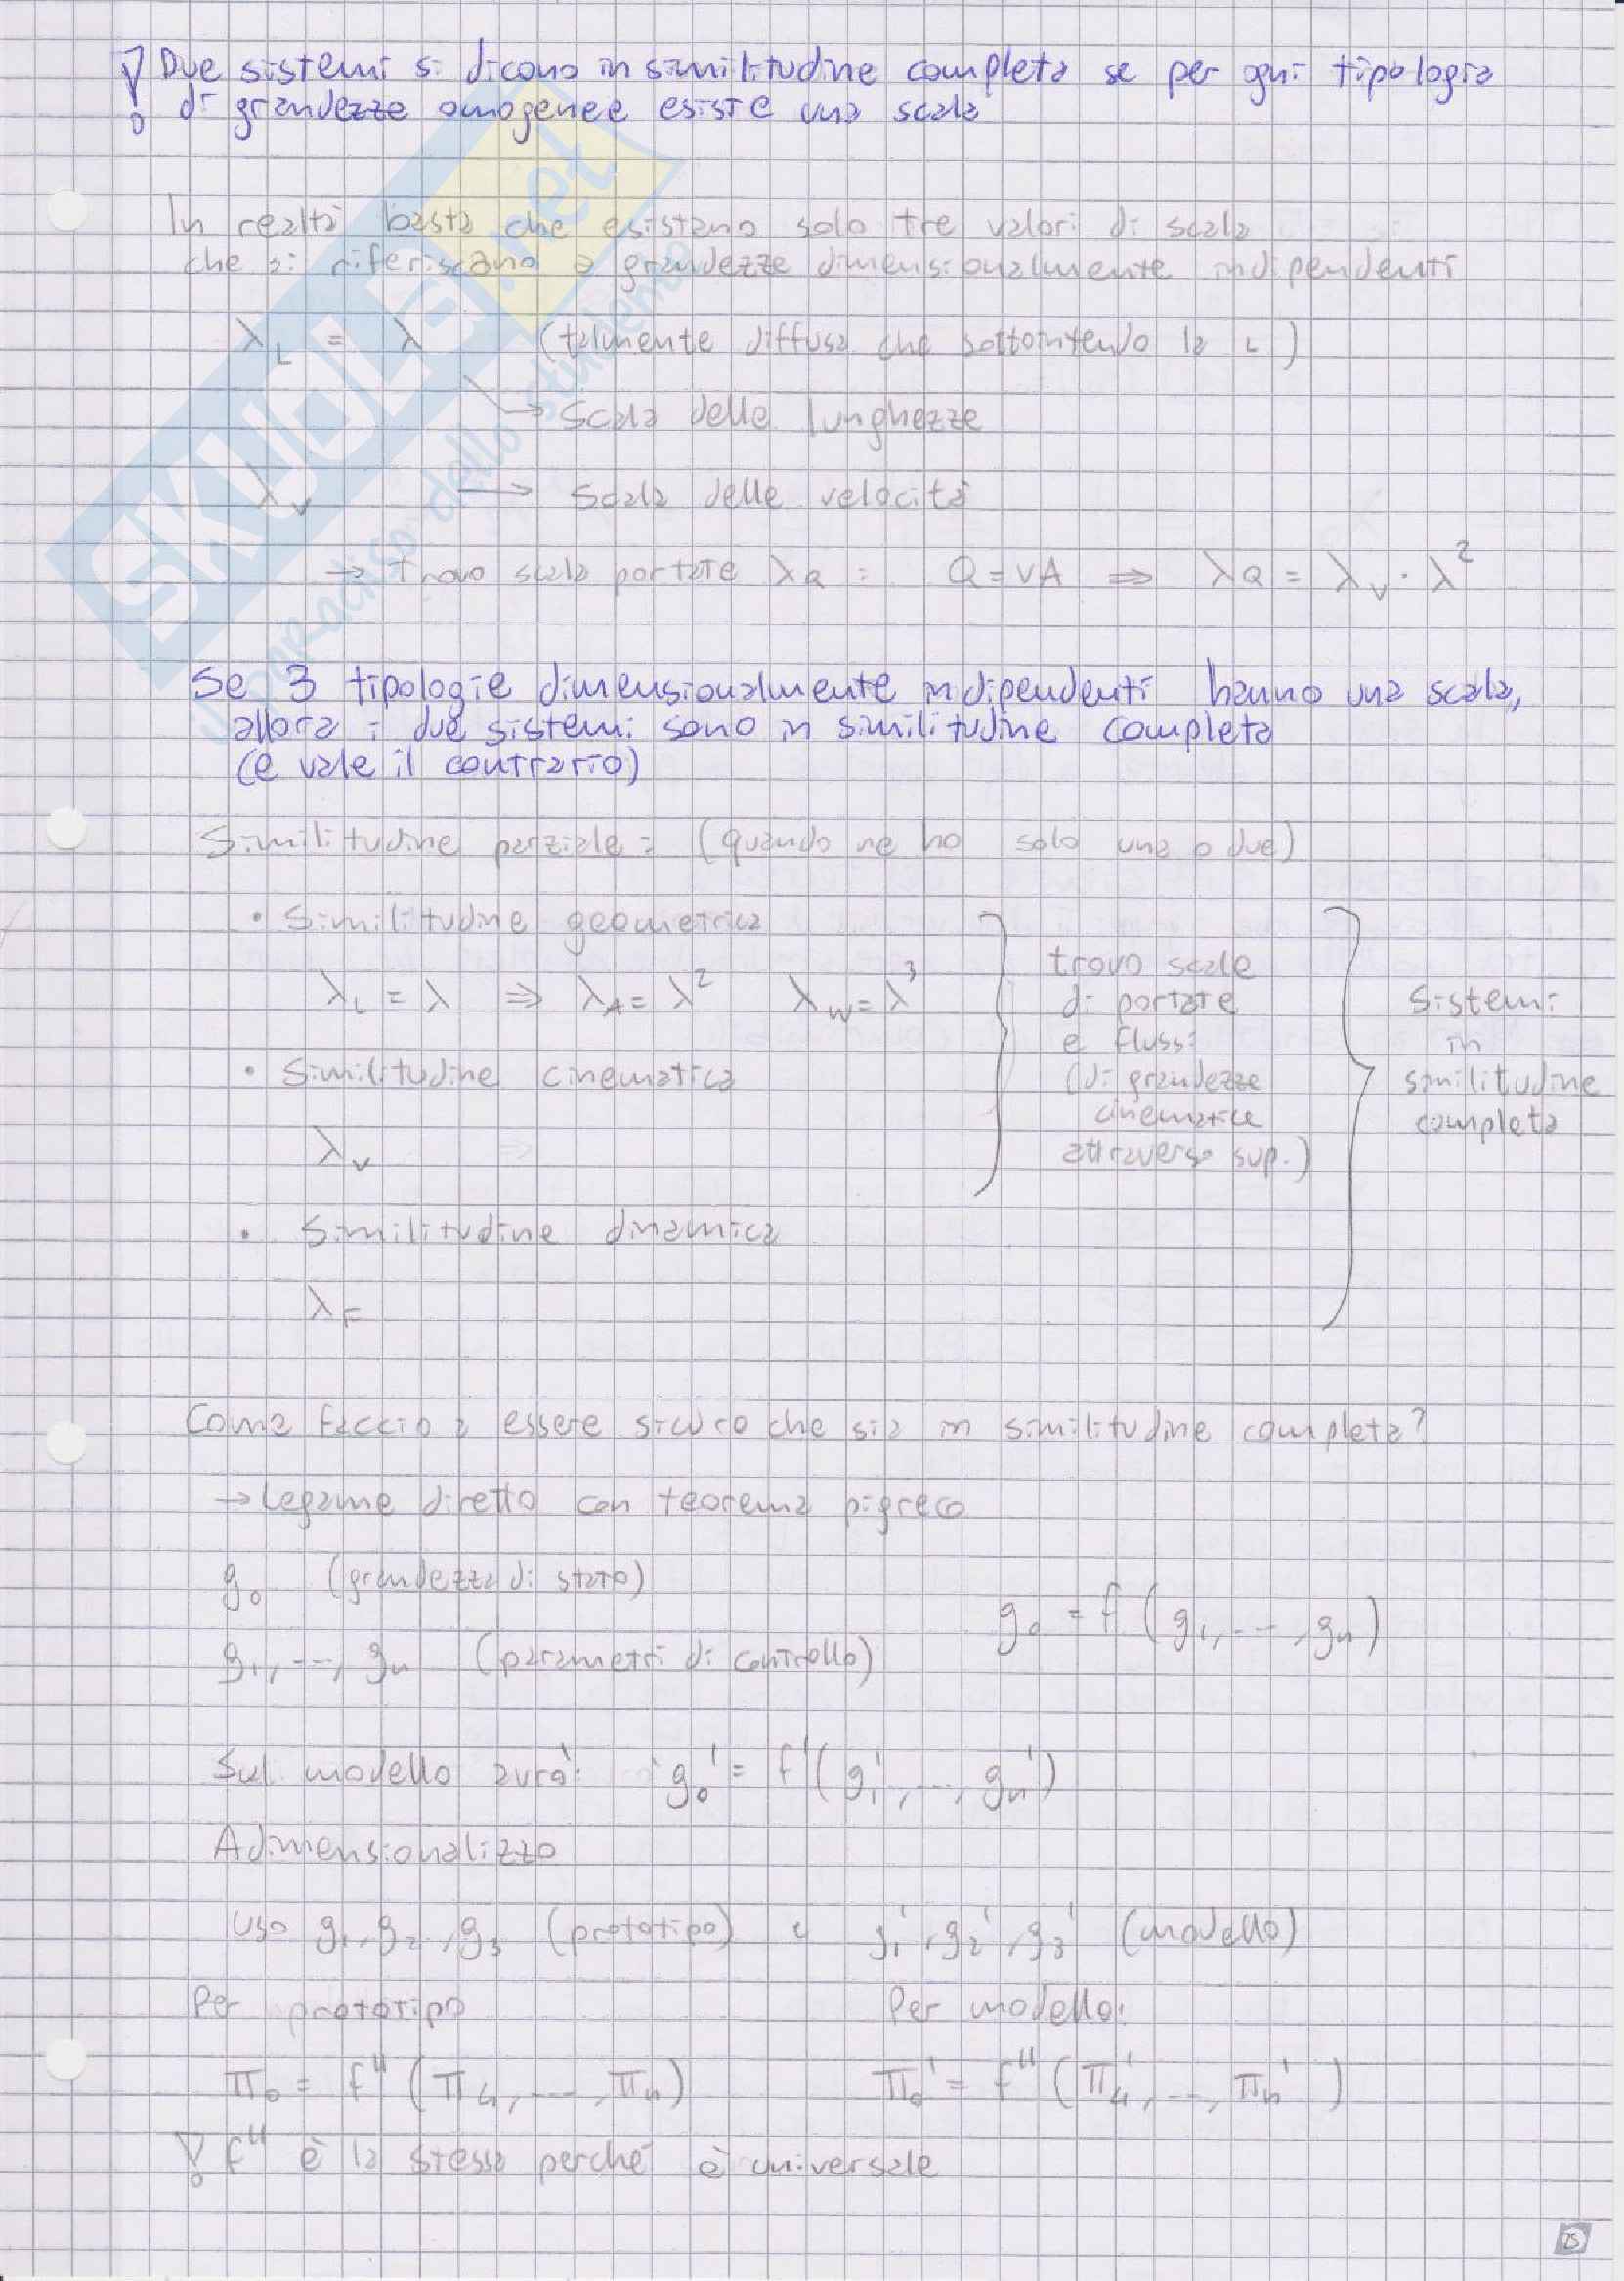 ! Due sistemi si dicono in similitudine completa se per ogni tipologia
di grandezze omogenee esiste una scala
In realtà basta che esistano solo tre valori di scala
che si riferiscano a grandezze dimensionalmente indipendenti
λL = λ (talmente diffusa che sottointendo la L)
→ Scala delle lunghezze
λv → Scala delle velocità
→ trovo scala portate λQ : Q = vA ⇒ λQ = λv · λ²
Se 3 tipologie dimensionalmente indipendenti hanno una scala,
allora i due sistemi sono in similitudine completa
(e vale il contrario)
Similitudine parziale: (quando ne ho solo una o due)
• Similitudine geometrica
λL = λ ⇒ λA = λ² λW = λ³
• Similitudine cinematica
λv
trovo scale
di portate
e flussi
(di grandezze
cinematice
attraverso sup.)
• Similitudine dinamica
λF
Sistemi
in
similitudine
completa
Come faccio a essere sicuro che sia in similitudine completa?
→ Legame diretto con teorema pigreco
g₀ (grandezza di stato)
g₁, ..., gn (parametri di controllo)
g₀ = f (g₁, ..., gn)
Sul modello avrò: g₀' = f'(g₁', ..., gn')
Adimensionalizzo
Uso g₁, g₂, g₃ (prototipo) e g₁', g₂', g₃' (modello)
Per prototipo
Per modello:
Π₀ = f" (Π₄, ..., Πn)
Π₀' = f" (Π₄', ..., Πn')
! f" è la stessa perché è universale
25
SKUOLA.net
il paradiso dello studente